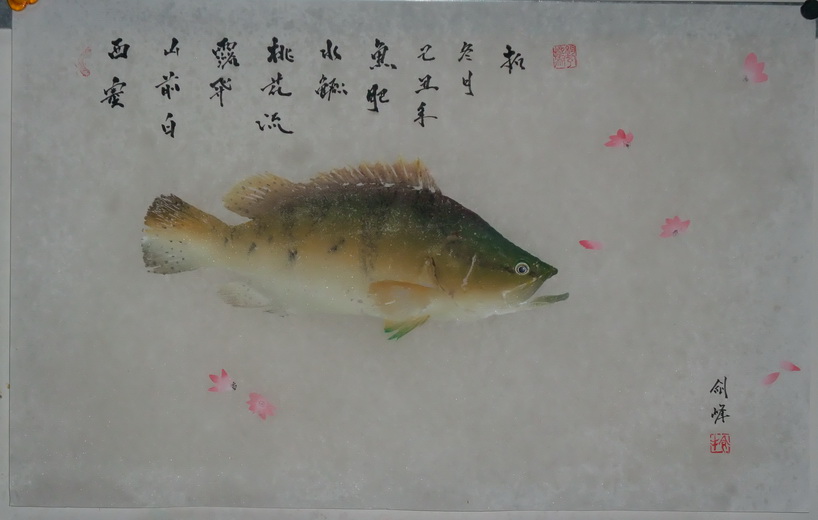 西塞
山前白
鹭飛
桃花流
水鳜
魚肥
己丑年
冬月
拓
剑峰